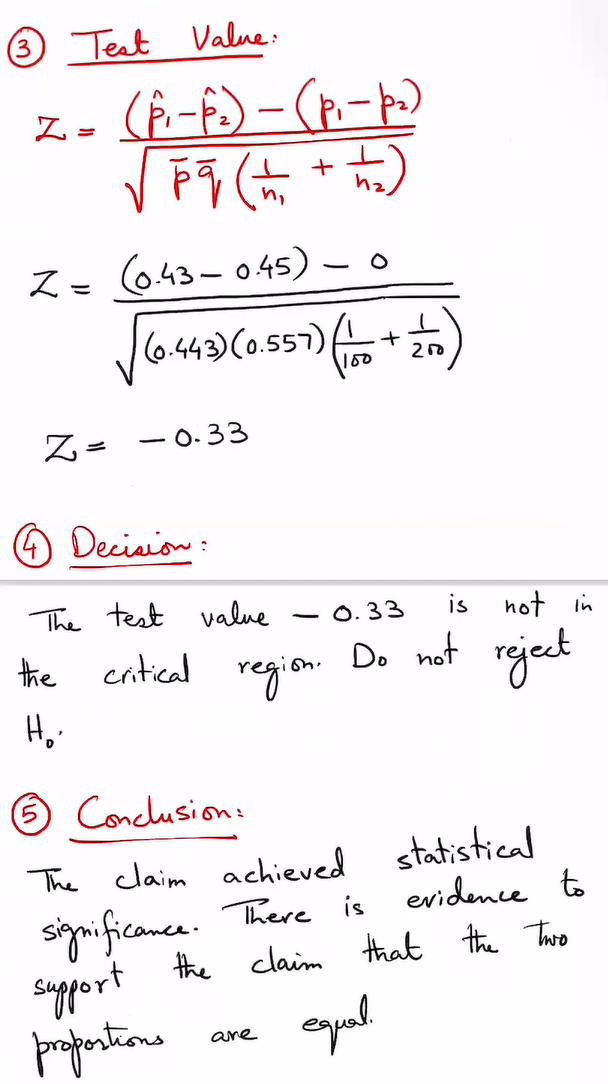 ③ Test Value:
Z = (p̂₁ − p̂₂) − (p₁ − p₂) / √ p̄ q̄ (1/n₁ + 1/n₂)
Z = (0.43 − 0.45) − 0 / √ (0.443)(0.557) (1/100 + 1/200)
Z = − 0.33
④ Decision:
The test value − 0.33 is not in
the critical region. Do not reject
H₀.
⑤ Conclusion:
The claim achieved statistical
significance. There is evidence to
support the claim that the two
proportions are equal.